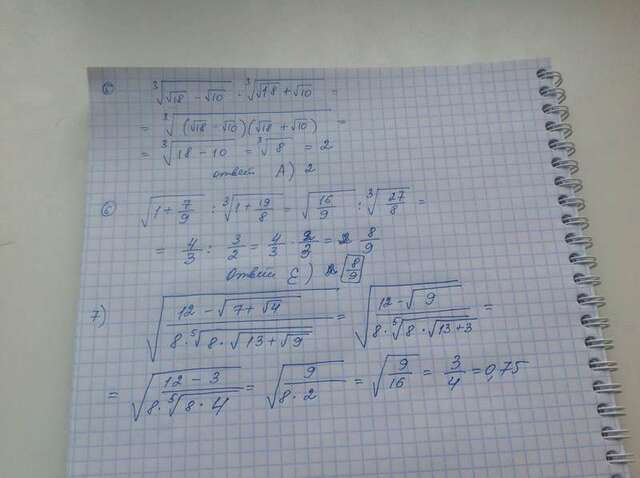 5) ∛(√18 - √10) · ∛(√18 + √10) =
= ∛((√18 - √10)(√18 + √10)) =
= ∛(18 - 10) = ∛8 = 2
ответ A) 2
6) √(1 + 7/9) : ∛(1 + 19/8) = √(16/9) : ∛(27/8) =
= 4/3 : 3/2 = 4/3 · 2/3 = 8/9
ответ E) 8/9
7) √((12 - √(7 + √4)) / (8 · ⁵√(8 · √(13 + √9)))) = √((12 - √9) / (8 · ⁵√(8 · √(13 + 3)))) =
= √((12 - 3) / (8 · ⁵√(8 · 4))) = √(9 / (8 · 2)) = √(9/16) = 3/4 = 0,75